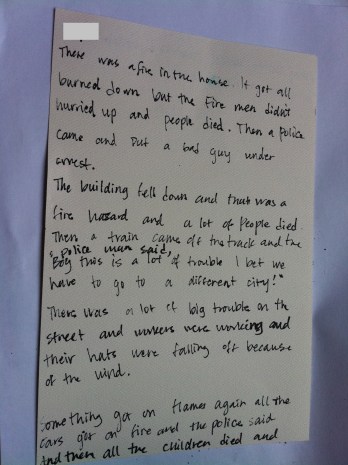 There was a fire in the house. It got all
burned down but the fire men didn't
hurried up and people died. Then a police
came and put a bad guy under
arrest.
The building fell down and that was a
fire hazard and a lot of people died.
Then a train came off the track and the
"police man said,
Boy this is a lot of trouble I bet we
have to go to a different city!"
There was a lot of big trouble on the
street and workers were working and
their hats were falling off because
of the wind.
Something got on flames again all the
cars got on fire and the police said
and then all the children died and